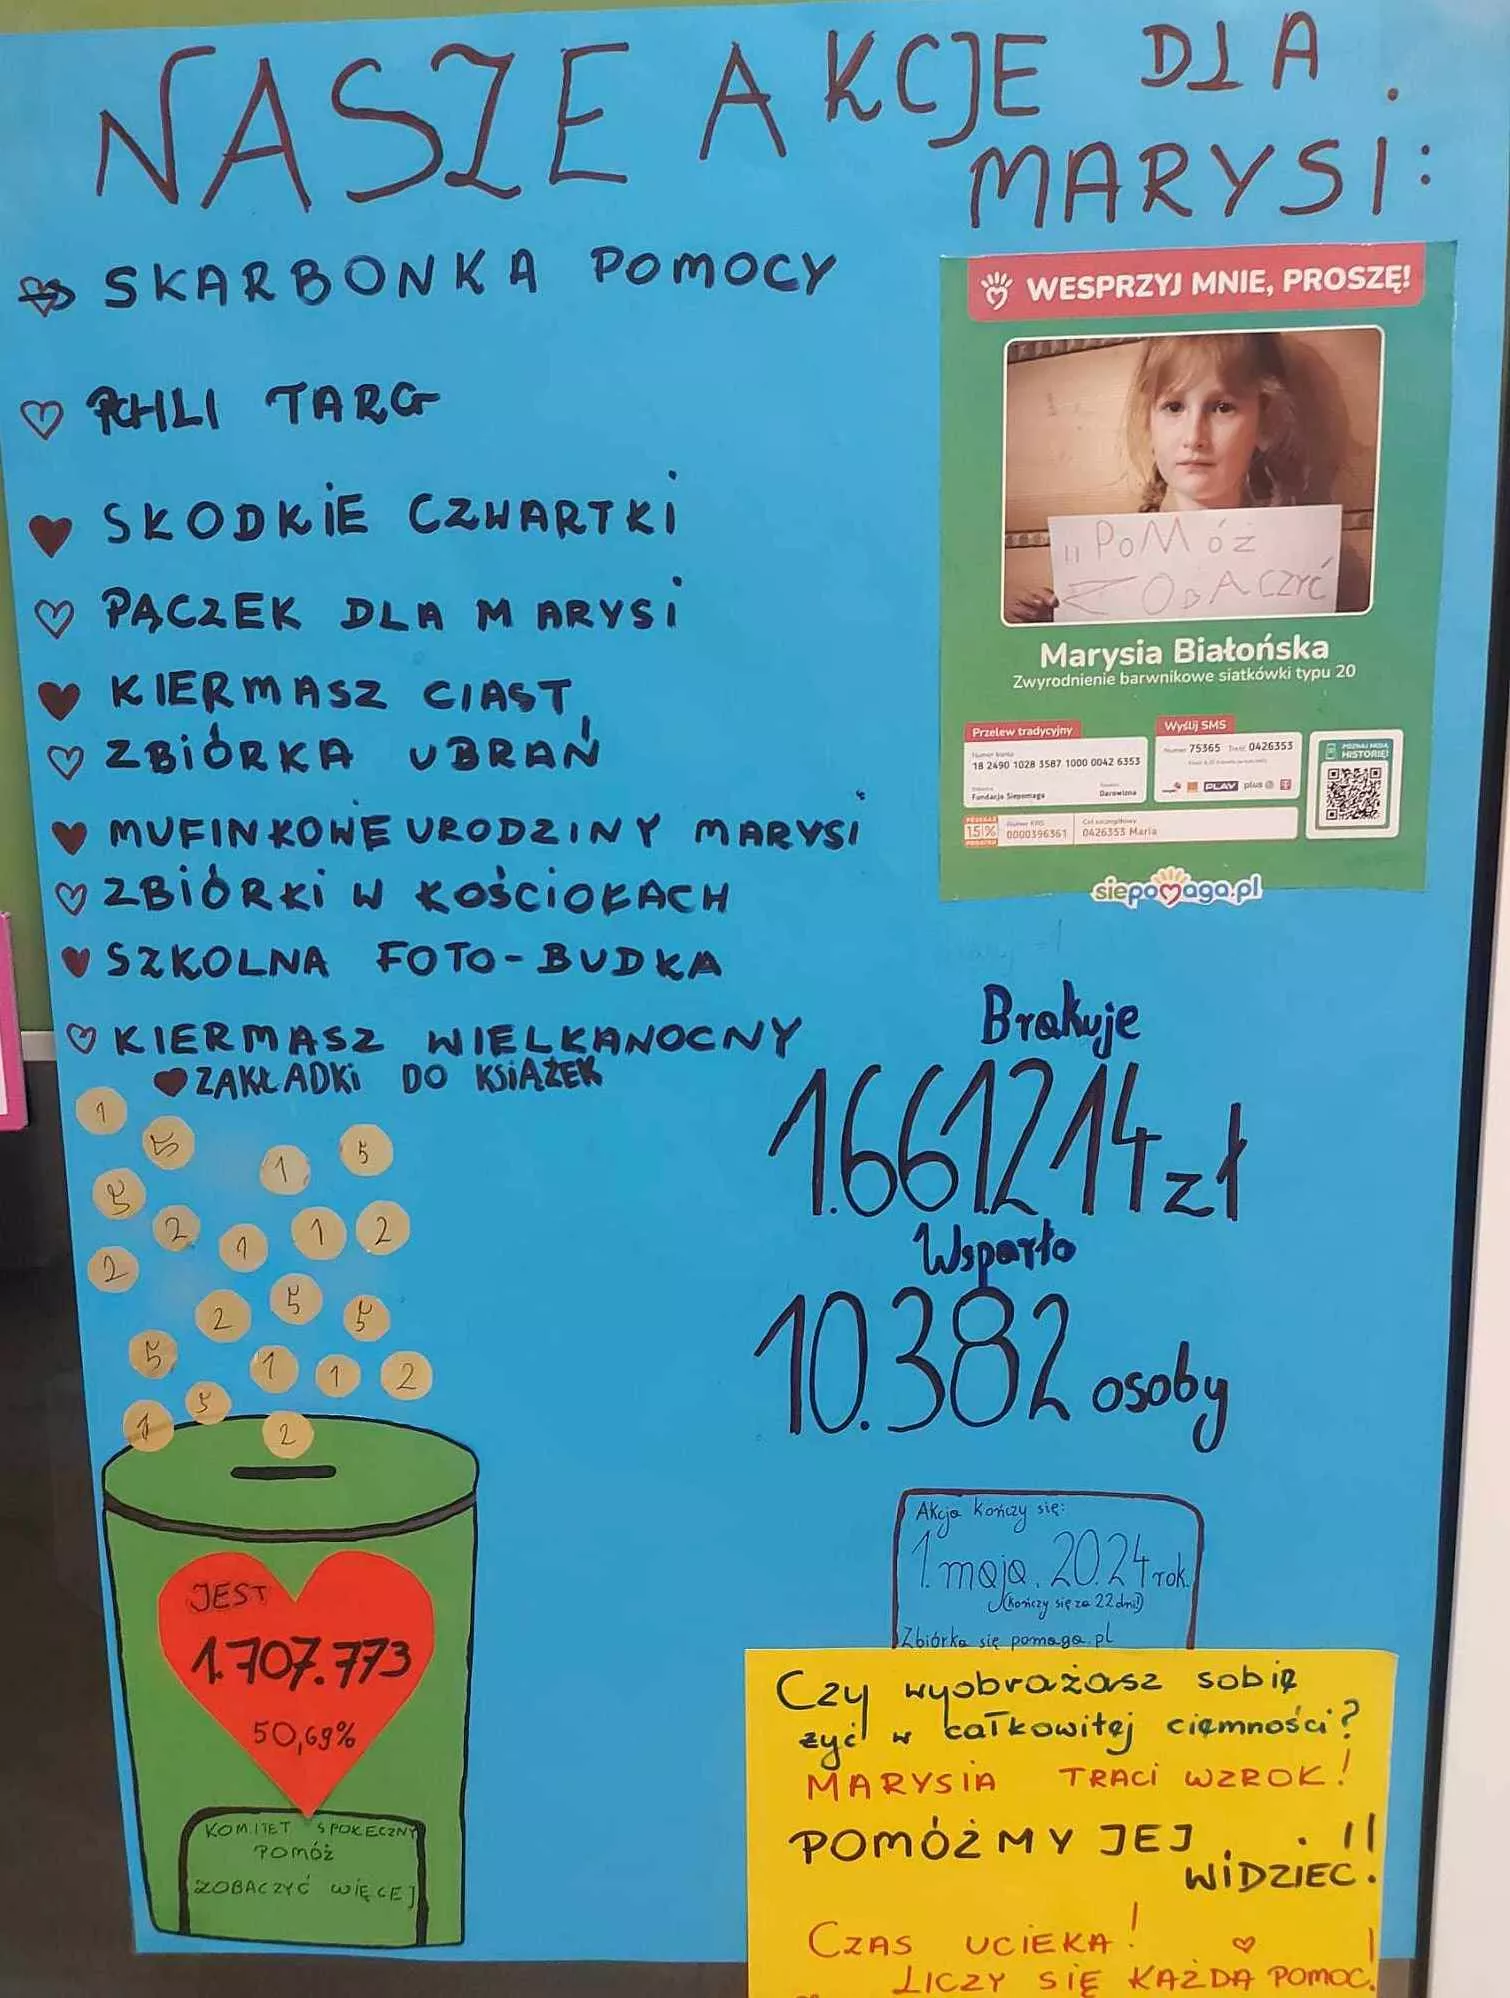 NASZE AKCJE DLA
MARYSI:
SKARBONKA POMOCY
PCHLI TARG
SŁODKIE CZWARTKI
PĄCZEK DLA MARYSI
KIERMASZ CIAST
ZBIÓRKA UBRAŃ
MUFINKOWE URODZINY MARYSI
ZBIÓRKI W KOŚCIOŁACH
SZKOLNA FOTO-BUDKA
KIERMASZ WIELKANOCNY
ZAKŁADKI DO KSIĄŻEK
WESPRZYJ MNIE, PROSZĘ!
"POMÓŻ
ZOBACZYĆ
Marysia Białońska
Zwyrodnienie barwnikowe siatkówki typu 20
Przelew tradycyjny
Numer konta
18 2490 1028 3587 1000 0042 6353
Fundacja Siepomaga
Darowizna
Wyślij SMS
Numer 75365 Treść 0426353
PLAY plus T
POZNAJ MOJĄ
HISTORIĘ!
PRZEKAŻ
1.5%
PODATKU
Numer KRS
0000396361
Cel szczegółowy
0426353 Maria
siepomaga.pl
Brakuje
1.661.214 zł
Wsparło
10.382 osoby
Akcja kończy się:
1. maja. 2024 rok.
(kończy się za 22 dni!)
Zbiórka się pomaga.pl
1
5
1
5
5
2
1
1
2
2
2
5
5
5
1
1
2
5
1
2
JEST
1.707.773
50,69%
KOMITET SPOŁECZNY
POMÓŻ
ZOBACZYĆ WIĘCEJ
Czy wyobrażasz sobie
żyć w całkowitej ciemności?
MARYSIA TRACI WZROK!
POMÓŻMY JEJ
WIDZIEĆ!!
CZAS UCIEKA!
LICZY SIĘ KAŻDA POMOC!